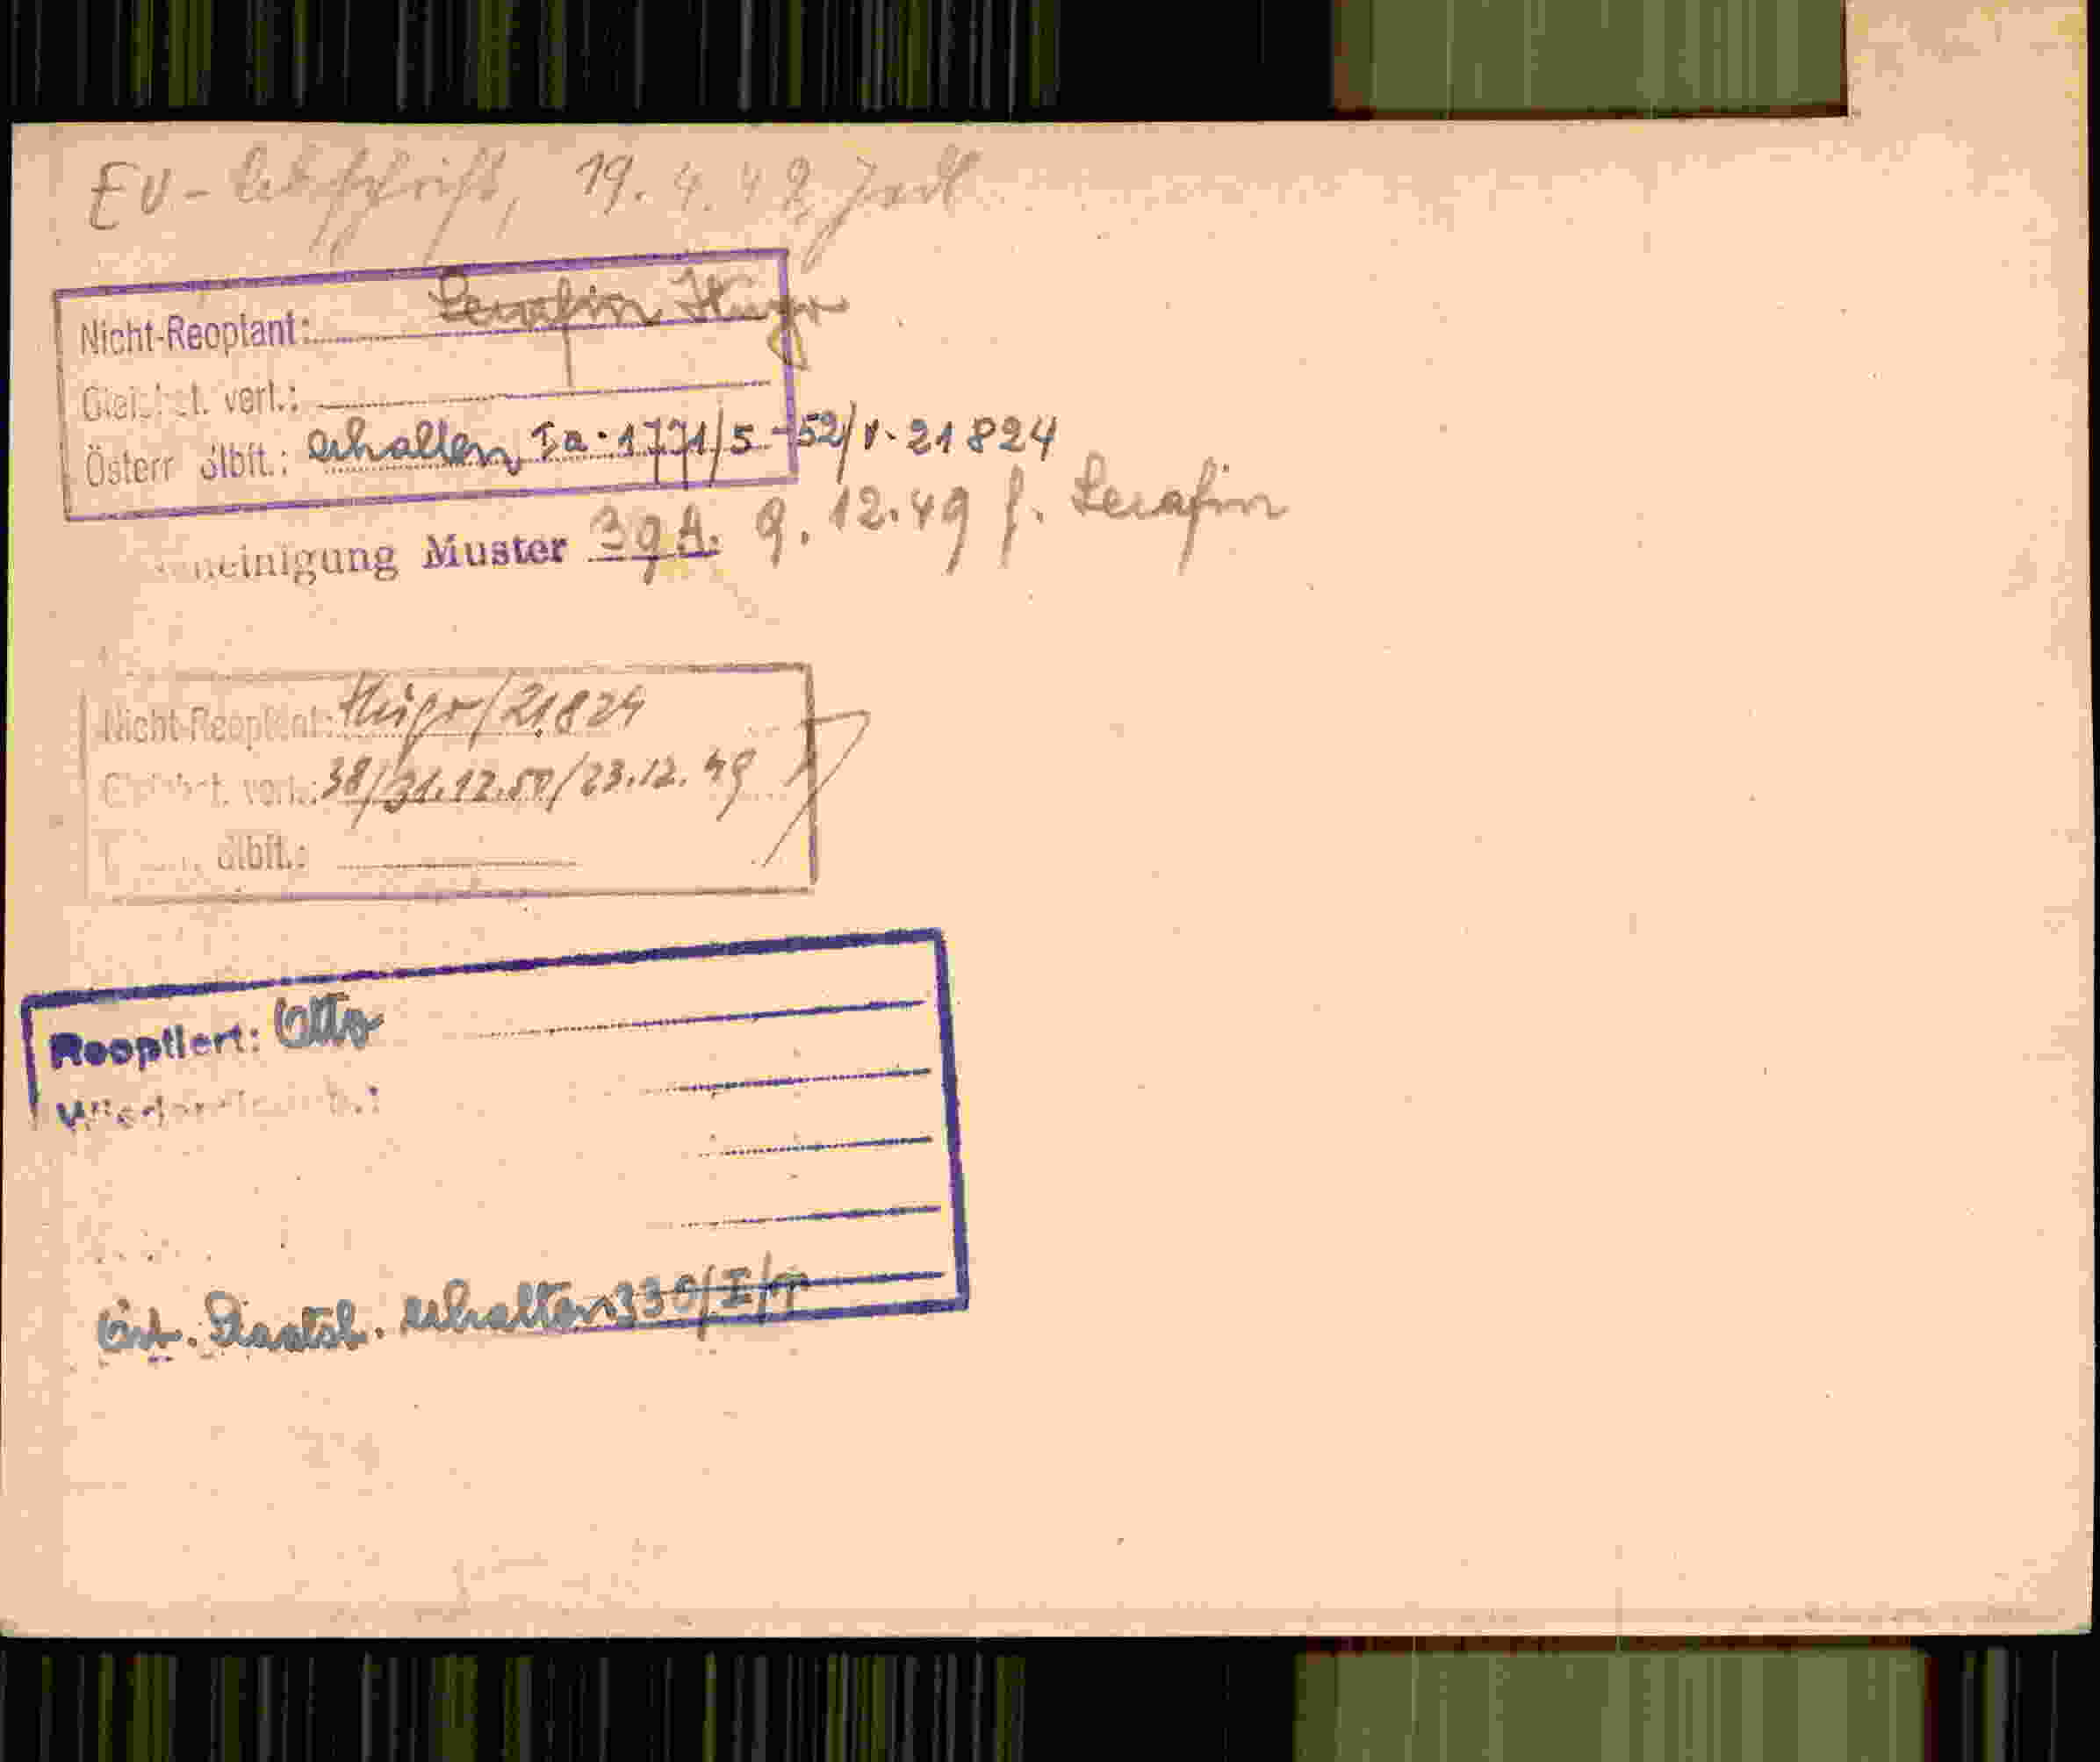 EV-Abschrift, 19.4.49
Nicht-Reoptant: Serafin Hugo
Gleichst. verl.:
Österr dlbft.: erhalten Ia-1771/5-52/v. 21824
Muster 39 A. 9.12.49 f. Serafin
Nicht-Reoptant: Hugo/21824
Gleichst. verl.: 38/31.12.50/23.12.49
dlbft.:
Reoptiert: Otto
Öst. Staatsb. erhalten 330/I/